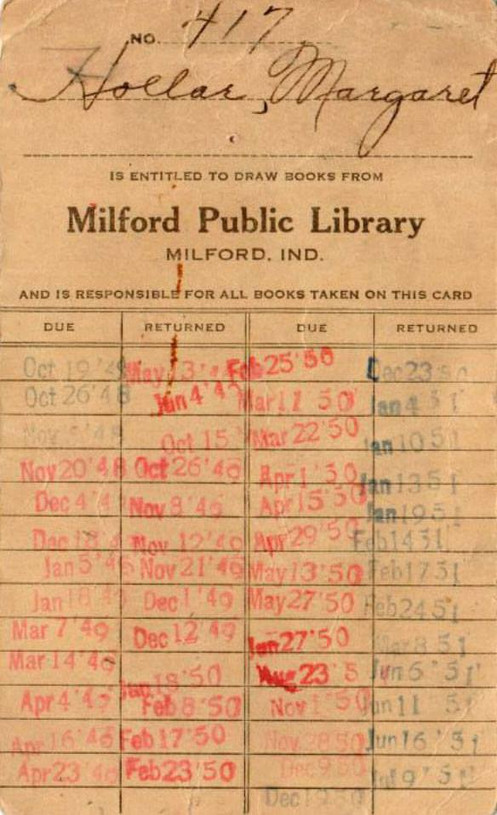 NO. 417
Hollar, Margaret
IS ENTITLED TO DRAW BOOKS FROM
Milford Public Library
MILFORD, IND.
AND IS RESPONSIBLE FOR ALL BOOKS TAKEN ON THIS CARD
DUE RETURNED DUE RETURNED
Oct 19 '48 May 3 Feb 25 '50 Dec 23
Oct 26 '48 Jun 4 '49 Mar 11 50 Jan 4 51
Oct 15 Mar 22 '50 Jan 10 51
Nov 20 '48 Oct 26 '49 Apr 1 '50 Jan 13 51
Dec 4 '4 Nov 8 '49 Apr 15 '50 Jan 19 51
Dec 18 Nov 12 '49 Apr 29 '50 Feb 14 51
Jan 5 '49 Nov 21 '49 May 13 '50 Feb 17 51
Jan 18 '49 Dec 1 '49 May 27 '50 Feb 24 51
Mar 7 '49 Dec 12 '49 27 '50 Mar 8 51
Mar 14 '49 Jan 18 '50 Aug 23 5 Jun 6 '51
Apr 4 '49 Feb 8 '50 Nov 1 '50 Jun 11 51
Apr 16 '49 Feb 17 '50 Nov 28 50 Jun 16 '51
Apr 23 '49 Feb 23 '50 Dec 9 50 Jul 9 '51
Dec 19 50